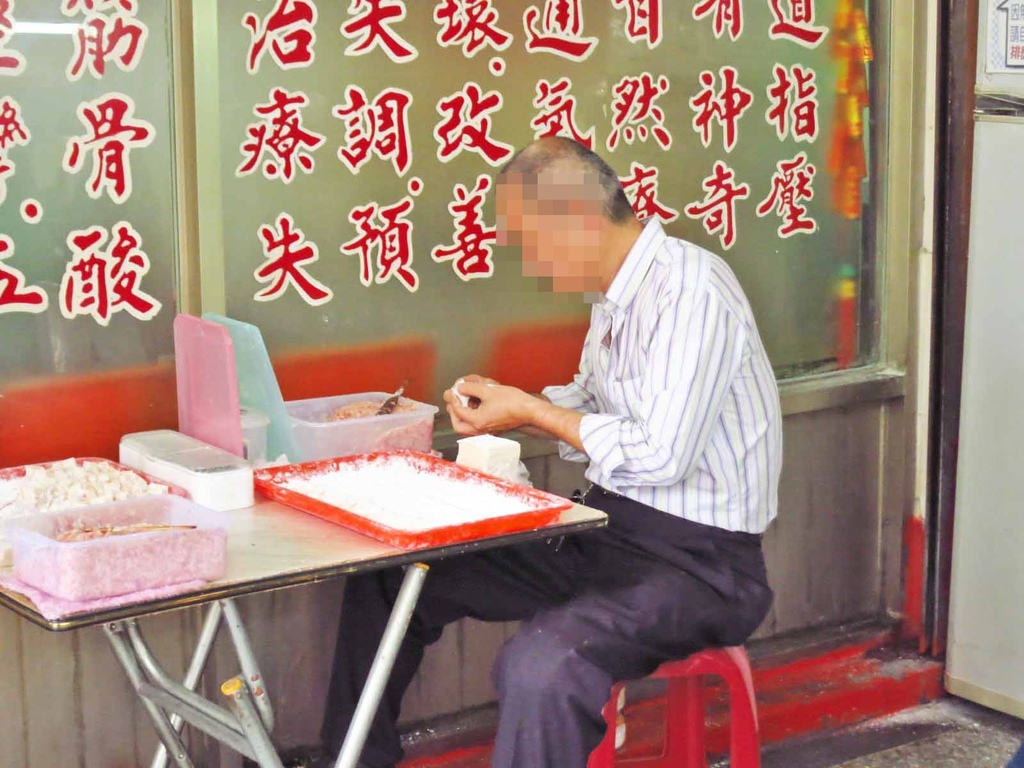 道指壓
有神奇
自然療
通氣
環·改善
失調·預
治療失
筋骨酸
請自